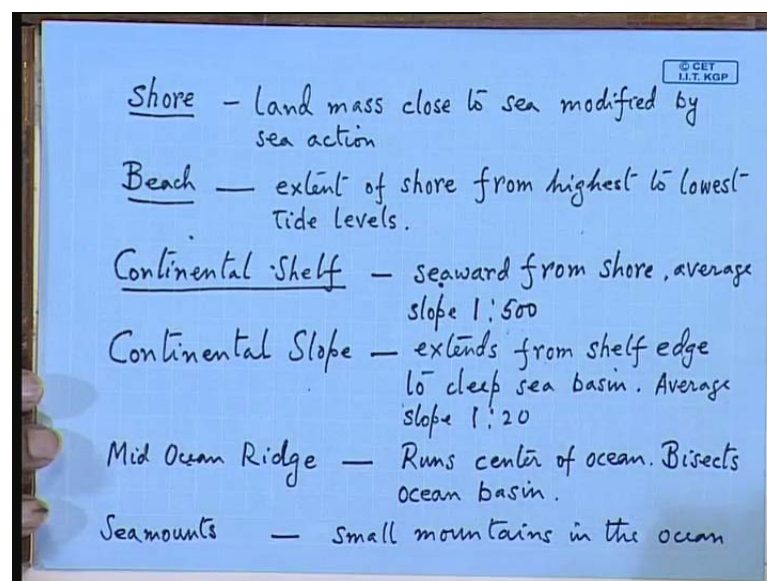 © CET
I.I.T. KGP
Shore - Land mass close to sea modified by
sea action
Beach — extent of shore from highest to lowest
Tide Levels.
Continental Shelf - seaward from shore, average
slope 1:500
Continental Slope — extends from shelf edge
to deep sea basin. Average
slope 1:20
Mid Ocean Ridge — Runs center of ocean. Bisects
ocean basin.
Seamounts — Small mountains in the ocean